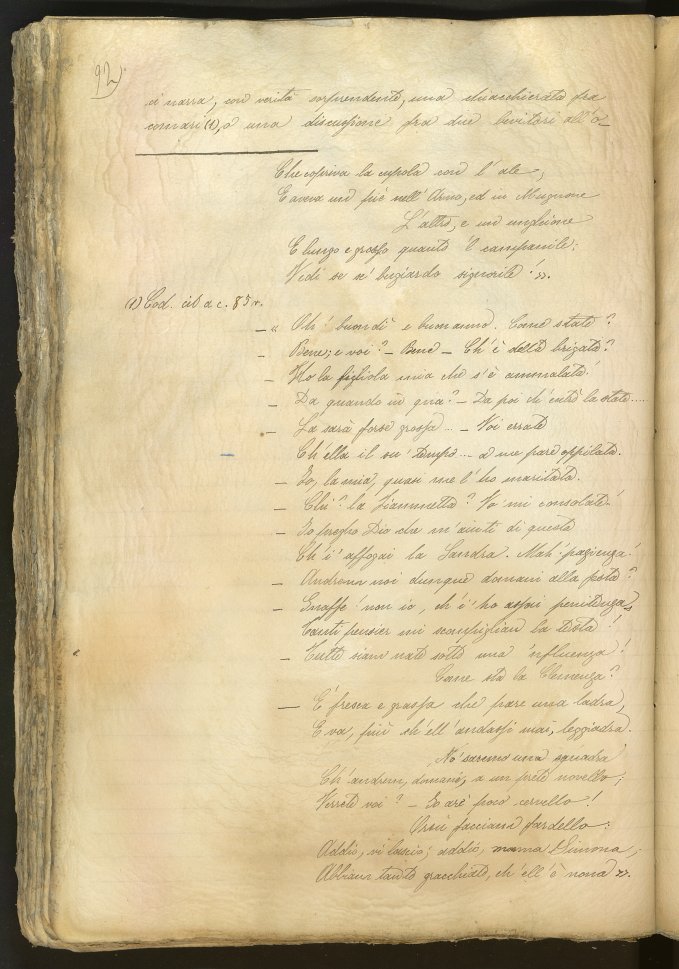 92
ci narra, con verità sorprendente, una chiacchierata fra
comari (1), o una discussione fra due bevitori all'o-
Che copriva la cupola con l'ale;
E aveva un piè nell'Arno, ed in Mugnone
L'altro, e un unghione
E lungo e grosso quanto 'l campanile:
Vedi se n' bugiardo signorile! ».
(1) Cod. cit. a c. 85 r.
— « Oh! buondì e buon anno. Come state?
— Bene; e voi? — Bene — Ch'è della brigata?
— Ho la figliola mia che s'è ammalata.
— Da quando in qua? — Da poi ch'entrò la state.....
— La sarà forse grossa... — Voi errate
Ch'ella il su' tempo.... a me pare oppilata.
— Io, la mia, quasi me l'ho maritata.
— Chi? la Giannetta? Vo' mi consolate!
— Io prego Dio che m'aiuti di questa
Ch'i' affogai la Sandra. Mah! pazienza!
— Andrenn noi dunque domani alla festa?
— Gnaffe! non io, ch'i' ho assai penitenza,
Tanti pensier mi scompiglian la testa!
— Tutte siam nate sotto una 'nfluenza!
Come sta la Clemenza?
— E' fresca e grassa che pare una ladra,
E va, più ch'ell'andassi mai, leggiadra.
No' saremo una squadra
Ch'andrem, domani, a un prete novello;
Verrete voi? — Eo arè poco cervello!
Orsù facciam fardello:
Addio, vi lascio; addio, monna Simona,
Abbiam tanto gracchiato, ch'ell'è nona ».